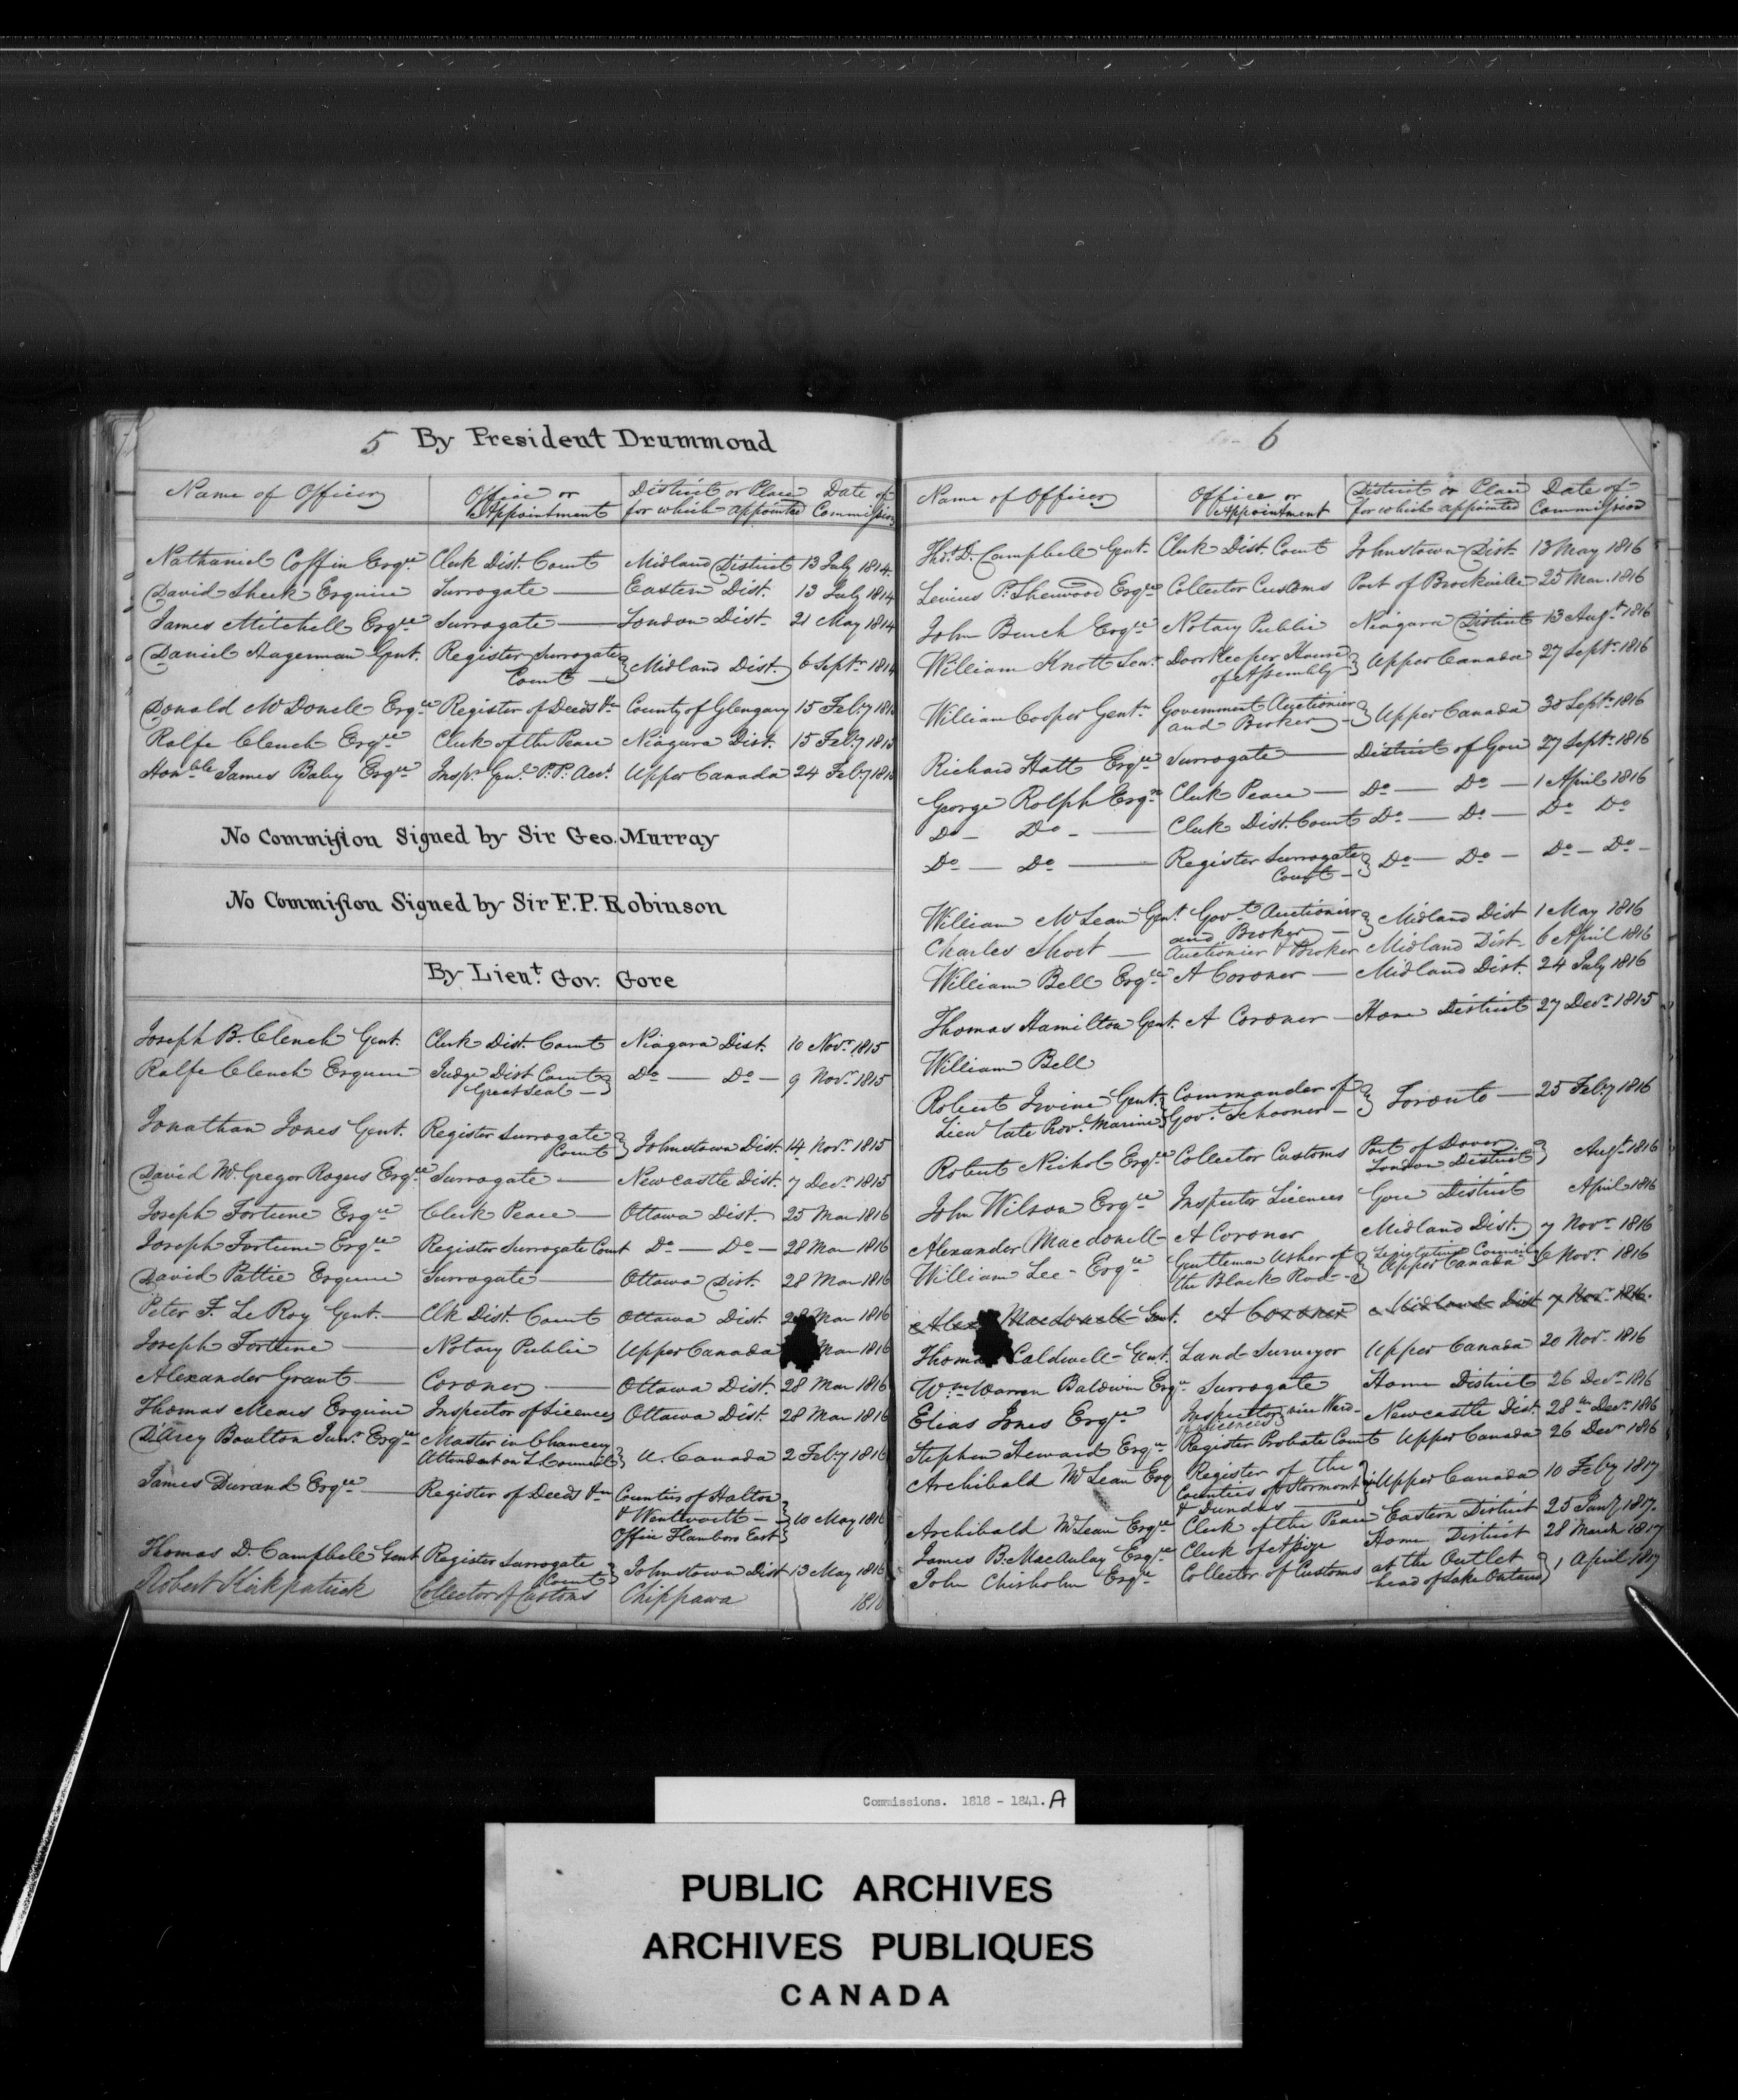 5 By President Drummond
Name of Officer Office or Appointment District or Place for which appointed Date of Commission
Nathaniel Coffin Esqre Clerk Dist. Court Midland District 13 July 1814
David Sheek Esquire Surrogate — Eastern Dist. 13 July 1814
James Mitchell Esqre Surrogate — London Dist. 21 May 1814
Daniel Hagerman Gent. Register Surrogate Court — Midland Dist. 6 Septr 1814
Donald McDonell Esqre Register of Deeds &c County of Glengary 15 Feby
Ralfe Clench Esqre Clerk of the Peace Niagara Dist. 15 Feby
Honble James Baby Esqre Inspr Genl P.P. Acct Upper Canada 24 Feby
No Commission Signed by Sir Geo. Murray
No Commission Signed by Sir F.P. Robinson
By Lieut. Gov: Gore
Joseph B. Clench Gent. Clerk Dist. Court Niagara Dist. 10 Novr 1815
Ralfe Clench Esquire Judge Dist Court Great Seal — Do — Do — 9 Novr 1815
Jonathan Jones Gent. Register Surrogate Court Johnstown Dist. 14 Novr 1815
David McGregor Rogers Esqre Surrogate — Newcastle Dist. 7 Decr 1815
Joseph Fortune Esqre Clerk Peace — Ottawa Dist. 25 Mar 1816
Joseph Fortune Esqre Register Surrogate Court Do — Do — 28 Mar 1816
David Pattie Esquire Surrogate — Ottawa Dist. 28 Mar 1816
Peter F. LeRoy Gent. — Clk Dist. Court Ottawa Dist. 28 Mar 1816
Joseph Fortune — Notary Public Upper Canada Mar 1816
Alexander Grant — Coroner — Ottawa Dist. 28 Mar 1816
Thomas Mears Esquire Inspector of Licences Ottawa Dist. 28 Mar 1816
D'Arcy Boulton Junr Esqre Master in Chancery Attendant on L Council U. Canada 2 Feby 1816
James Durand Esqre — Register of Deeds &c Counties of Halton
& Wentworth — 10 May 1816
Office Flamboro East
Thomas D. Campbell Gent Register Surrogate Court Johnstown Dist 13 May 1816
Robert Kirkpatrick Collector of Customs Chippawa
6
Name of Officer Office or Appointment District or Place for which appointed Date of Commission
Thos. D. Campbell Gent. Clerk Dist. Court Johnstown Dist. 13 May 1816
Levius P. Sherwood Esqre Collector Customs Port of Brockville 25 Mar. 1816
John Burch Esqre Notary Public Niagara District 13 Augt 1816
William Knott Senr DoorKeeper House of Assembly Upper Canada 27 Septr 1816
William Cooper Gent Government Auctionier and Broker — Upper Canada 30 Septr 1816
Richard Hatt Esqre Surrogate — District of Gore 27 Septr 1816
George Rolph Esqre Clerk Peace — Do — Do — 1 April 1816
Do — Do — Clerk Dist. Court Do — Do — Do Do
Do — Do — Register Surrogate Court — Do — Do — Do — Do —
William McLean Gent Govt Auctionier and Broker — Midland Dist 1 May 1816
Charles Short — Auctionier & Broker Midland Dist. 6 April 1816
William Bell Esqre A Coroner — Midland Dist. 24 July 1816
Thomas Hamilton Gent. A Coroner — Home District 27 Decr 1815
William Bell
Robert Irvine Gent. Commander of
Lieut late Prov. Marine Govt Schooner — Toronto — 25 Feby 1816
Robert Nichol Esqre Collector Customs Port of Dover London District Augt 1816
John Wilson Esqre Inspector Licences Gore District April 1816
Alexander Macdonell A Coroner Midland Dist. 7 Novr 1816
William Lee Esqre Gentleman Usher of the Black Rod — Legislative Council Upper Canada 6 Novr 1816
Macdonell Gent. A Coroner Midland Dist 7 Novr 1816.
Thomas Caldwell Gent. Land Surveyor Upper Canada 20 Novr 1816
Wm Warren Baldwin Esqre Surrogate Home District 26 Decr 1816
Elias Jones Esqre Inspector of Licences vice Ward — Newcastle Dist. 28th Decr 1816
Stephen Heward Esqre Register Probate Court Upper Canada 26 Decr 1816
Archibald McLean Esq Register of the Counties of Stormont & Dundas — in Upper Canada 10 Feby 1817
Archibald McLean Esqre Clerk of the Peace Eastern District 25 Jany 1817.
James B. MacAulay Esqre Clerk of Assize Home District 28 March 1817
John Chisholm Esqre Collector of Customs at the Outlet head of Lake Ontario 1 April 1817
Commissions. 1818 - 1841. A
PUBLIC ARCHIVES
ARCHIVES PUBLIQUES
CANADA